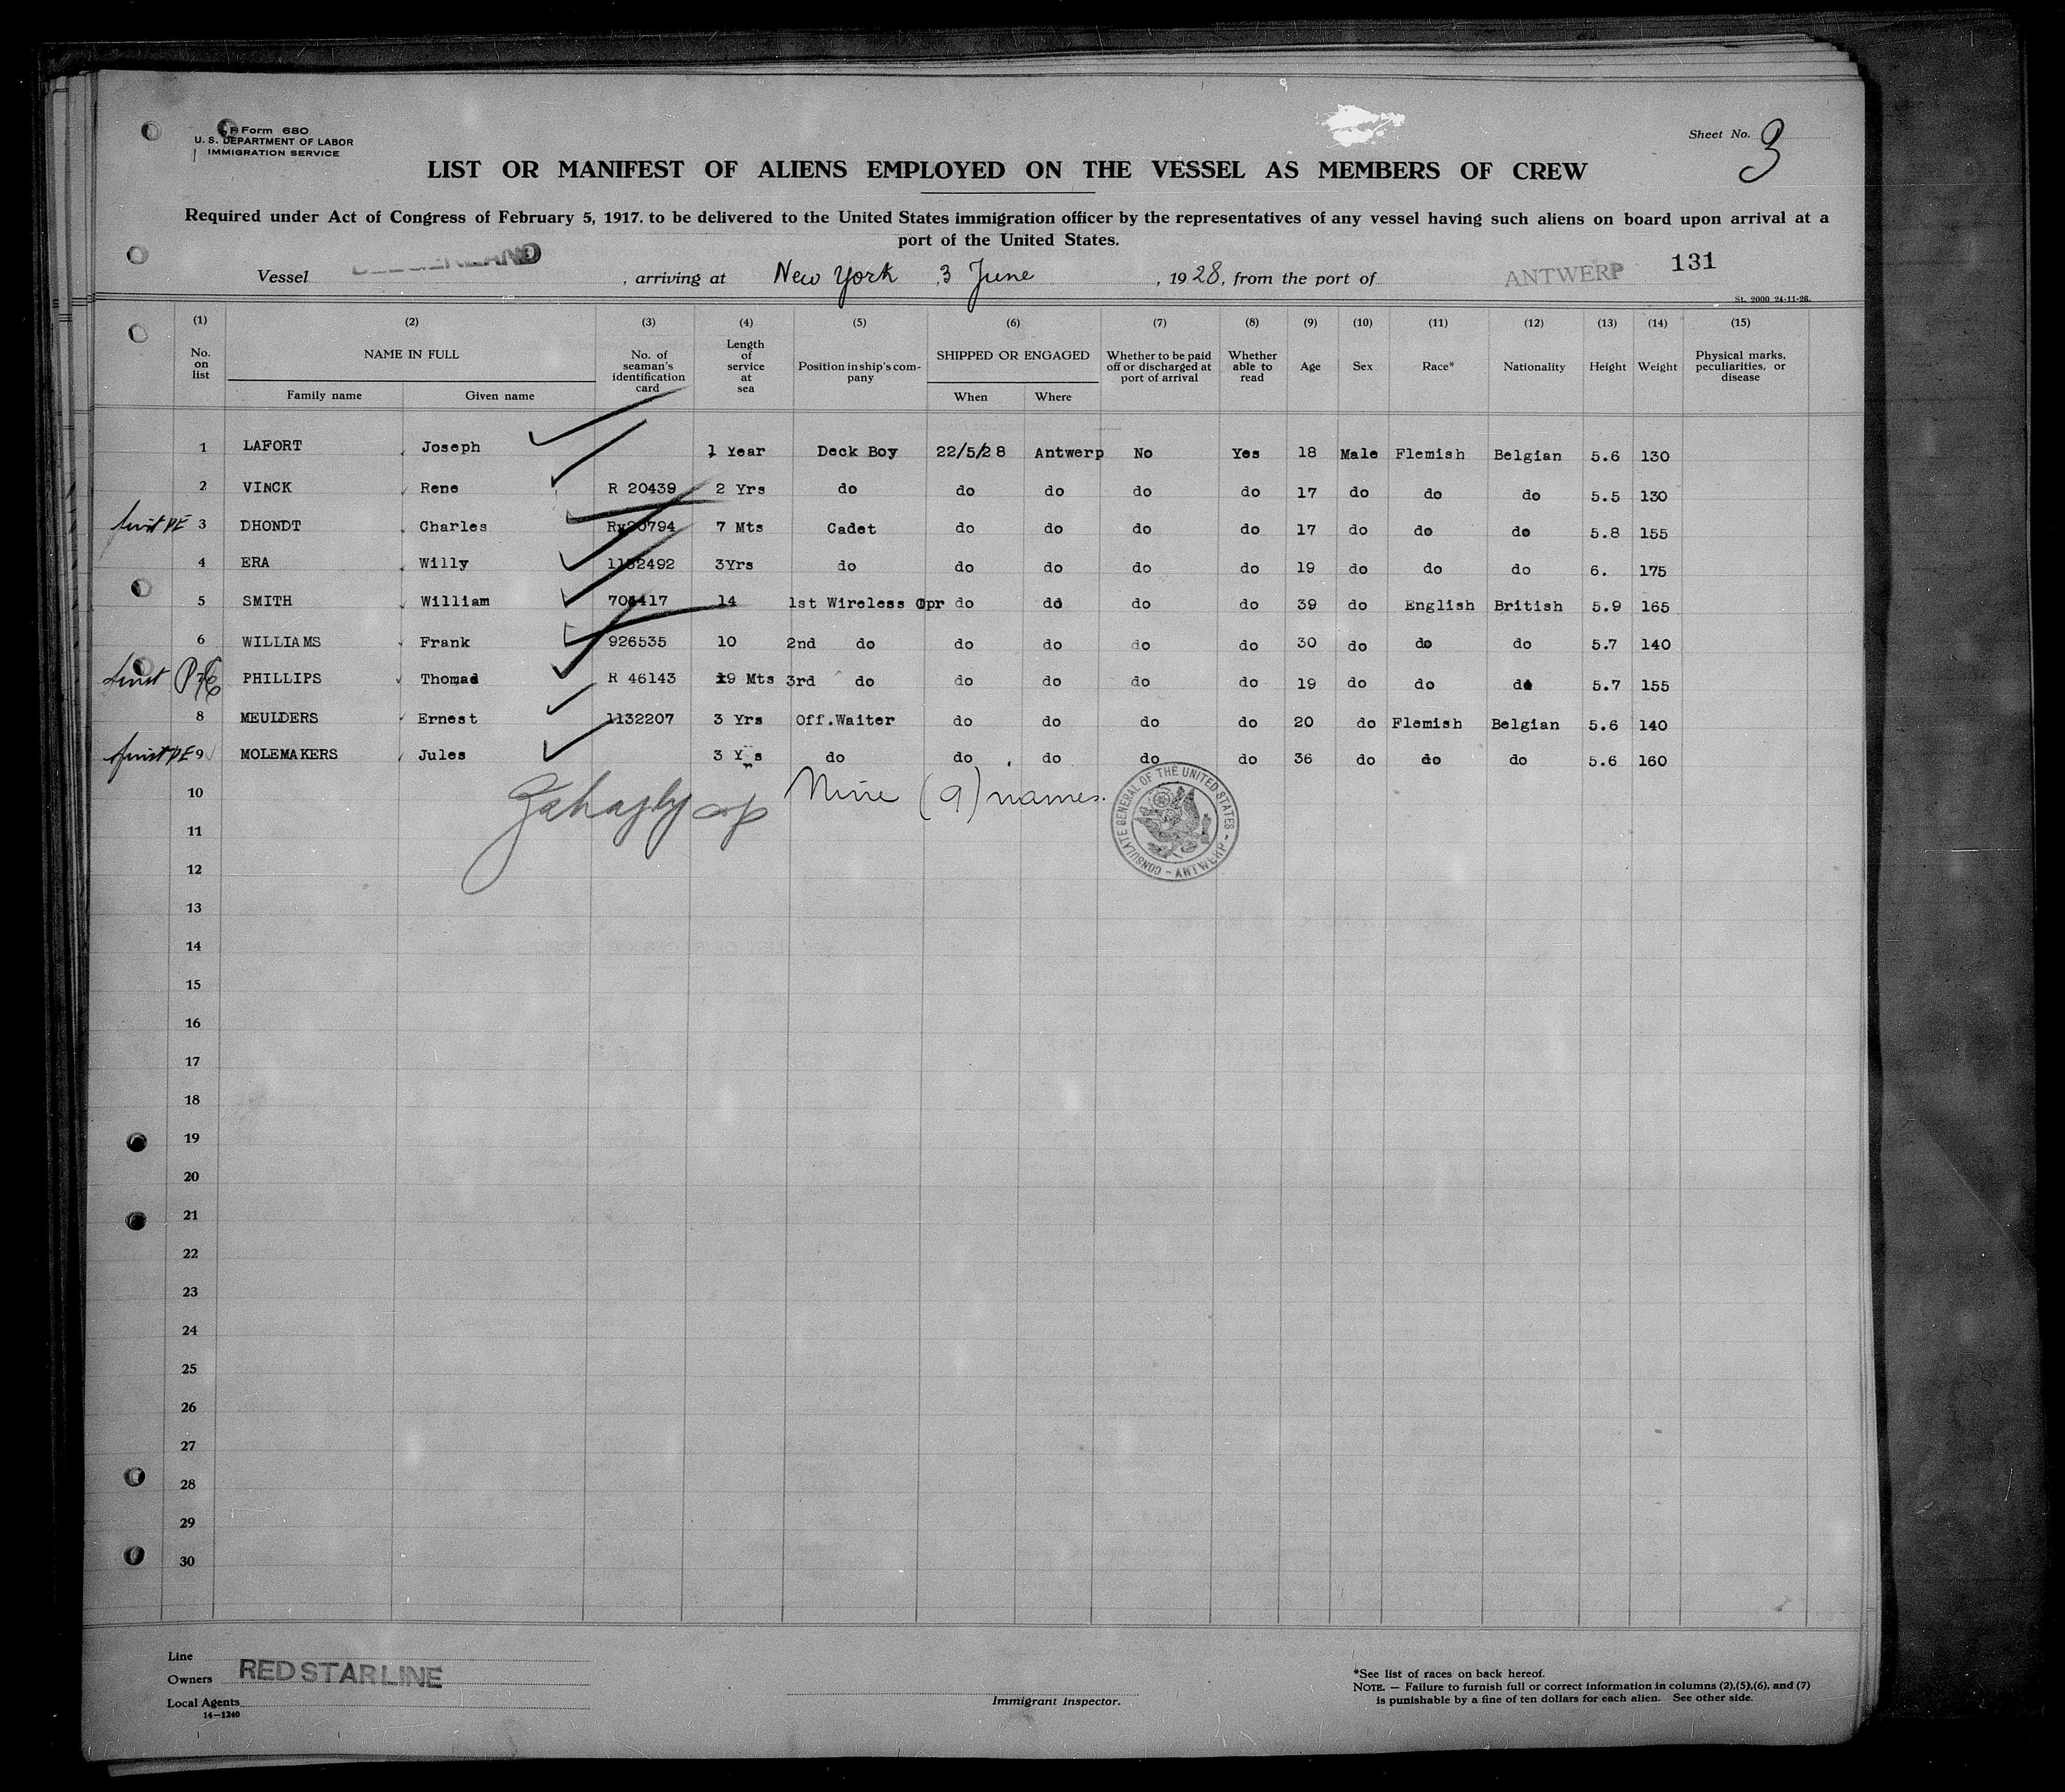 Form 680
U. S. DEPARTMENT OF LABOR
IMMIGRATION SERVICE
Sheet No. 3
LIST OR MANIFEST OF ALIENS EMPLOYED ON THE VESSEL AS MEMBERS OF CREW
Required under Act of Congress of February 5, 1917. to be delivered to the United States immigration officer by the representatives of any vessel having such aliens on board upon arrival at a
port of the United States.
Vessel BELGENLAND, arriving at New York 3 June, 1928, from the port of ANTWERP 131
St. 2000 24-11-26.
(1) (2) (3) (4) (5) (6) (7) (8) (9) (10) (11) (12) (13) (14) (15)
No. on list NAME IN FULL No. of seaman's identification card Length of service at sea Position in ship's company SHIPPED OR ENGAGED Whether to be paid off or discharged at port of arrival Whether able to read Age Sex Race* Nationality Height Weight Physical marks, peculiarities, or disease
Family name Given name When Where
1 LAFORT Joseph 1 Year Deck Boy 22/5/28 Antwerp No Yes 18 Male Flemish Belgian 5.6 130
2 VINCK Rene R 20439 2 Yrs do do do do do 17 do do do 5.5 130
3 DHONDT Charles 7 Mts Cadet do do do do 17 do do do 5.8 155
4 ERA Willy 1132492 3Yrs do do do do do 19 do do do 6. 175
5 SMITH William 14 1st Wireless Opr do do do do 39 do English British 5.9 165
6 WILLIAMS Frank 926535 10 2nd do do do do do 30 do do do 5.7 140
PHILLIPS Thomas R 46143 19 Mts 3rd do do do do do 19 do do do 5.7 155
8 MEULDERS Ernest 1132207 3 Yrs Off.Waiter do do do do 20 do Flemish Belgian 5.6 140
9 MOLEMAKERS Jules 3 Yrs do do do do do 36 do do do 5.6 160
10 Nine (9) names.
CONSULATE GENERAL OF THE UNITED STATES - ANTWERP -
11
12
13
14
15
16
17
18
19
20
21
22
23
24
25
26
27
28
29
30
Line
Owners RED STAR LINE
Local Agents
14—1240
Immigrant Inspector.
*See list of races on back hereof.
NOTE. — Failure to furnish full or correct information in columns (2),(5),(6), and (7)
is punishable by a fine of ten dollars for each alien. See other side.